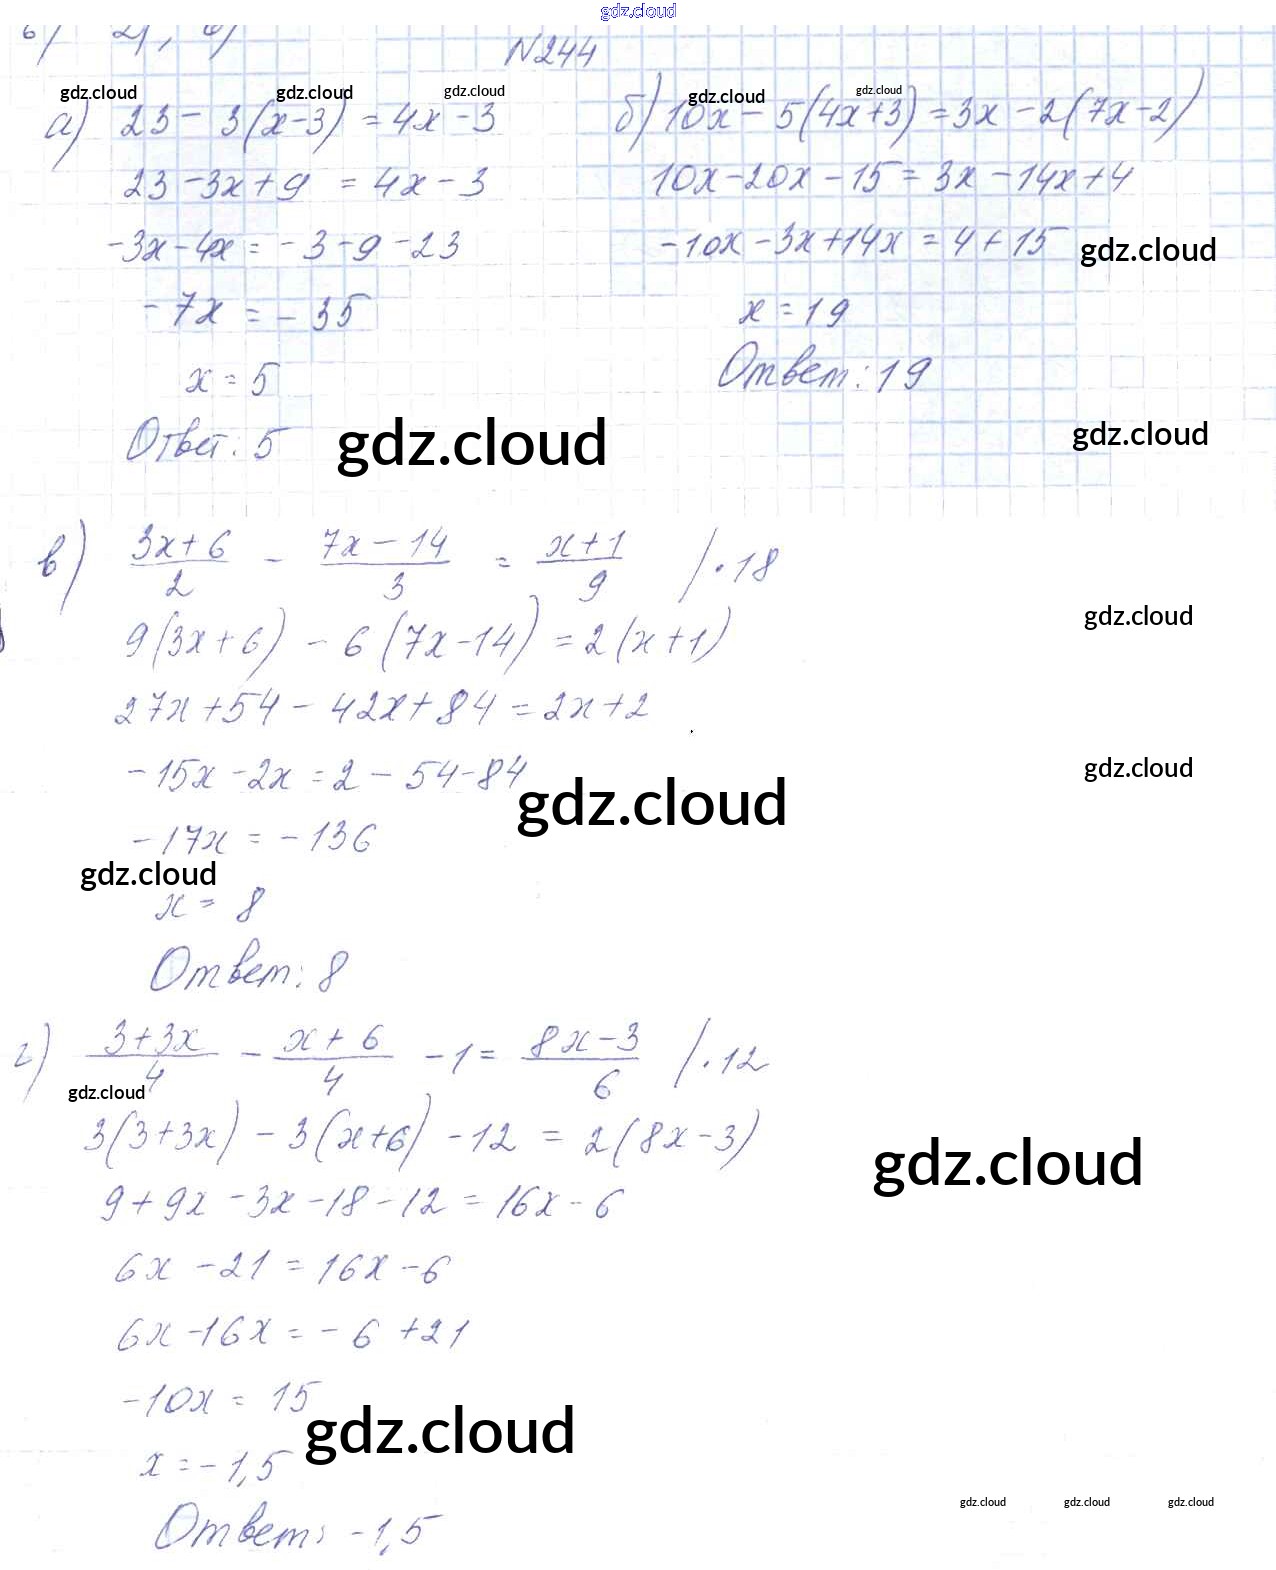 gdz.cloud
в) 2), б)
N244
gdz.cloud gdz.cloud gdz.cloud gdz.cloud gdz.cloud
а) 23 - 3(x-3) = 4x - 3
23 - 3x + 9 = 4x - 3
-3x - 4x = - 3 - 9 - 23
- 7x = - 35
x = 5
Ответ: 5
б) 10x - 5(4x+3) = 3x - 2(7x-2)
10x - 20x - 15 = 3x - 14x + 4
- 10x - 3x + 14x = 4 + 15
gdz.cloud
x = 19
Ответ: 19
gdz.cloud gdz.cloud
в) (3x+6)/2 - (7x-14)/3 = (x+1)/9 /·18
gdz.cloud
9(3x+6) - 6(7x-14) = 2(x+1)
27x + 54 - 42x + 84 = 2x + 2
- 15x - 2x = 2 - 54 - 84
gdz.cloud
gdz.cloud
- 17x = - 136
gdz.cloud
x = 8
Ответ: 8
г) (3+3x)/4 - (x+6)/4 - 1 = (8x-3)/6 /·12
gdz.cloud
3(3+3x) - 3(x+6) - 12 = 2(8x-3)
gdz.cloud
9 + 9x - 3x - 18 - 12 = 16x - 6
6x - 21 = 16x - 6
6x - 16x = - 6 + 21
- 10x = 15
gdz.cloud
x = - 1,5
gdz.cloud gdz.cloud gdz.cloud
Ответ: - 1,5